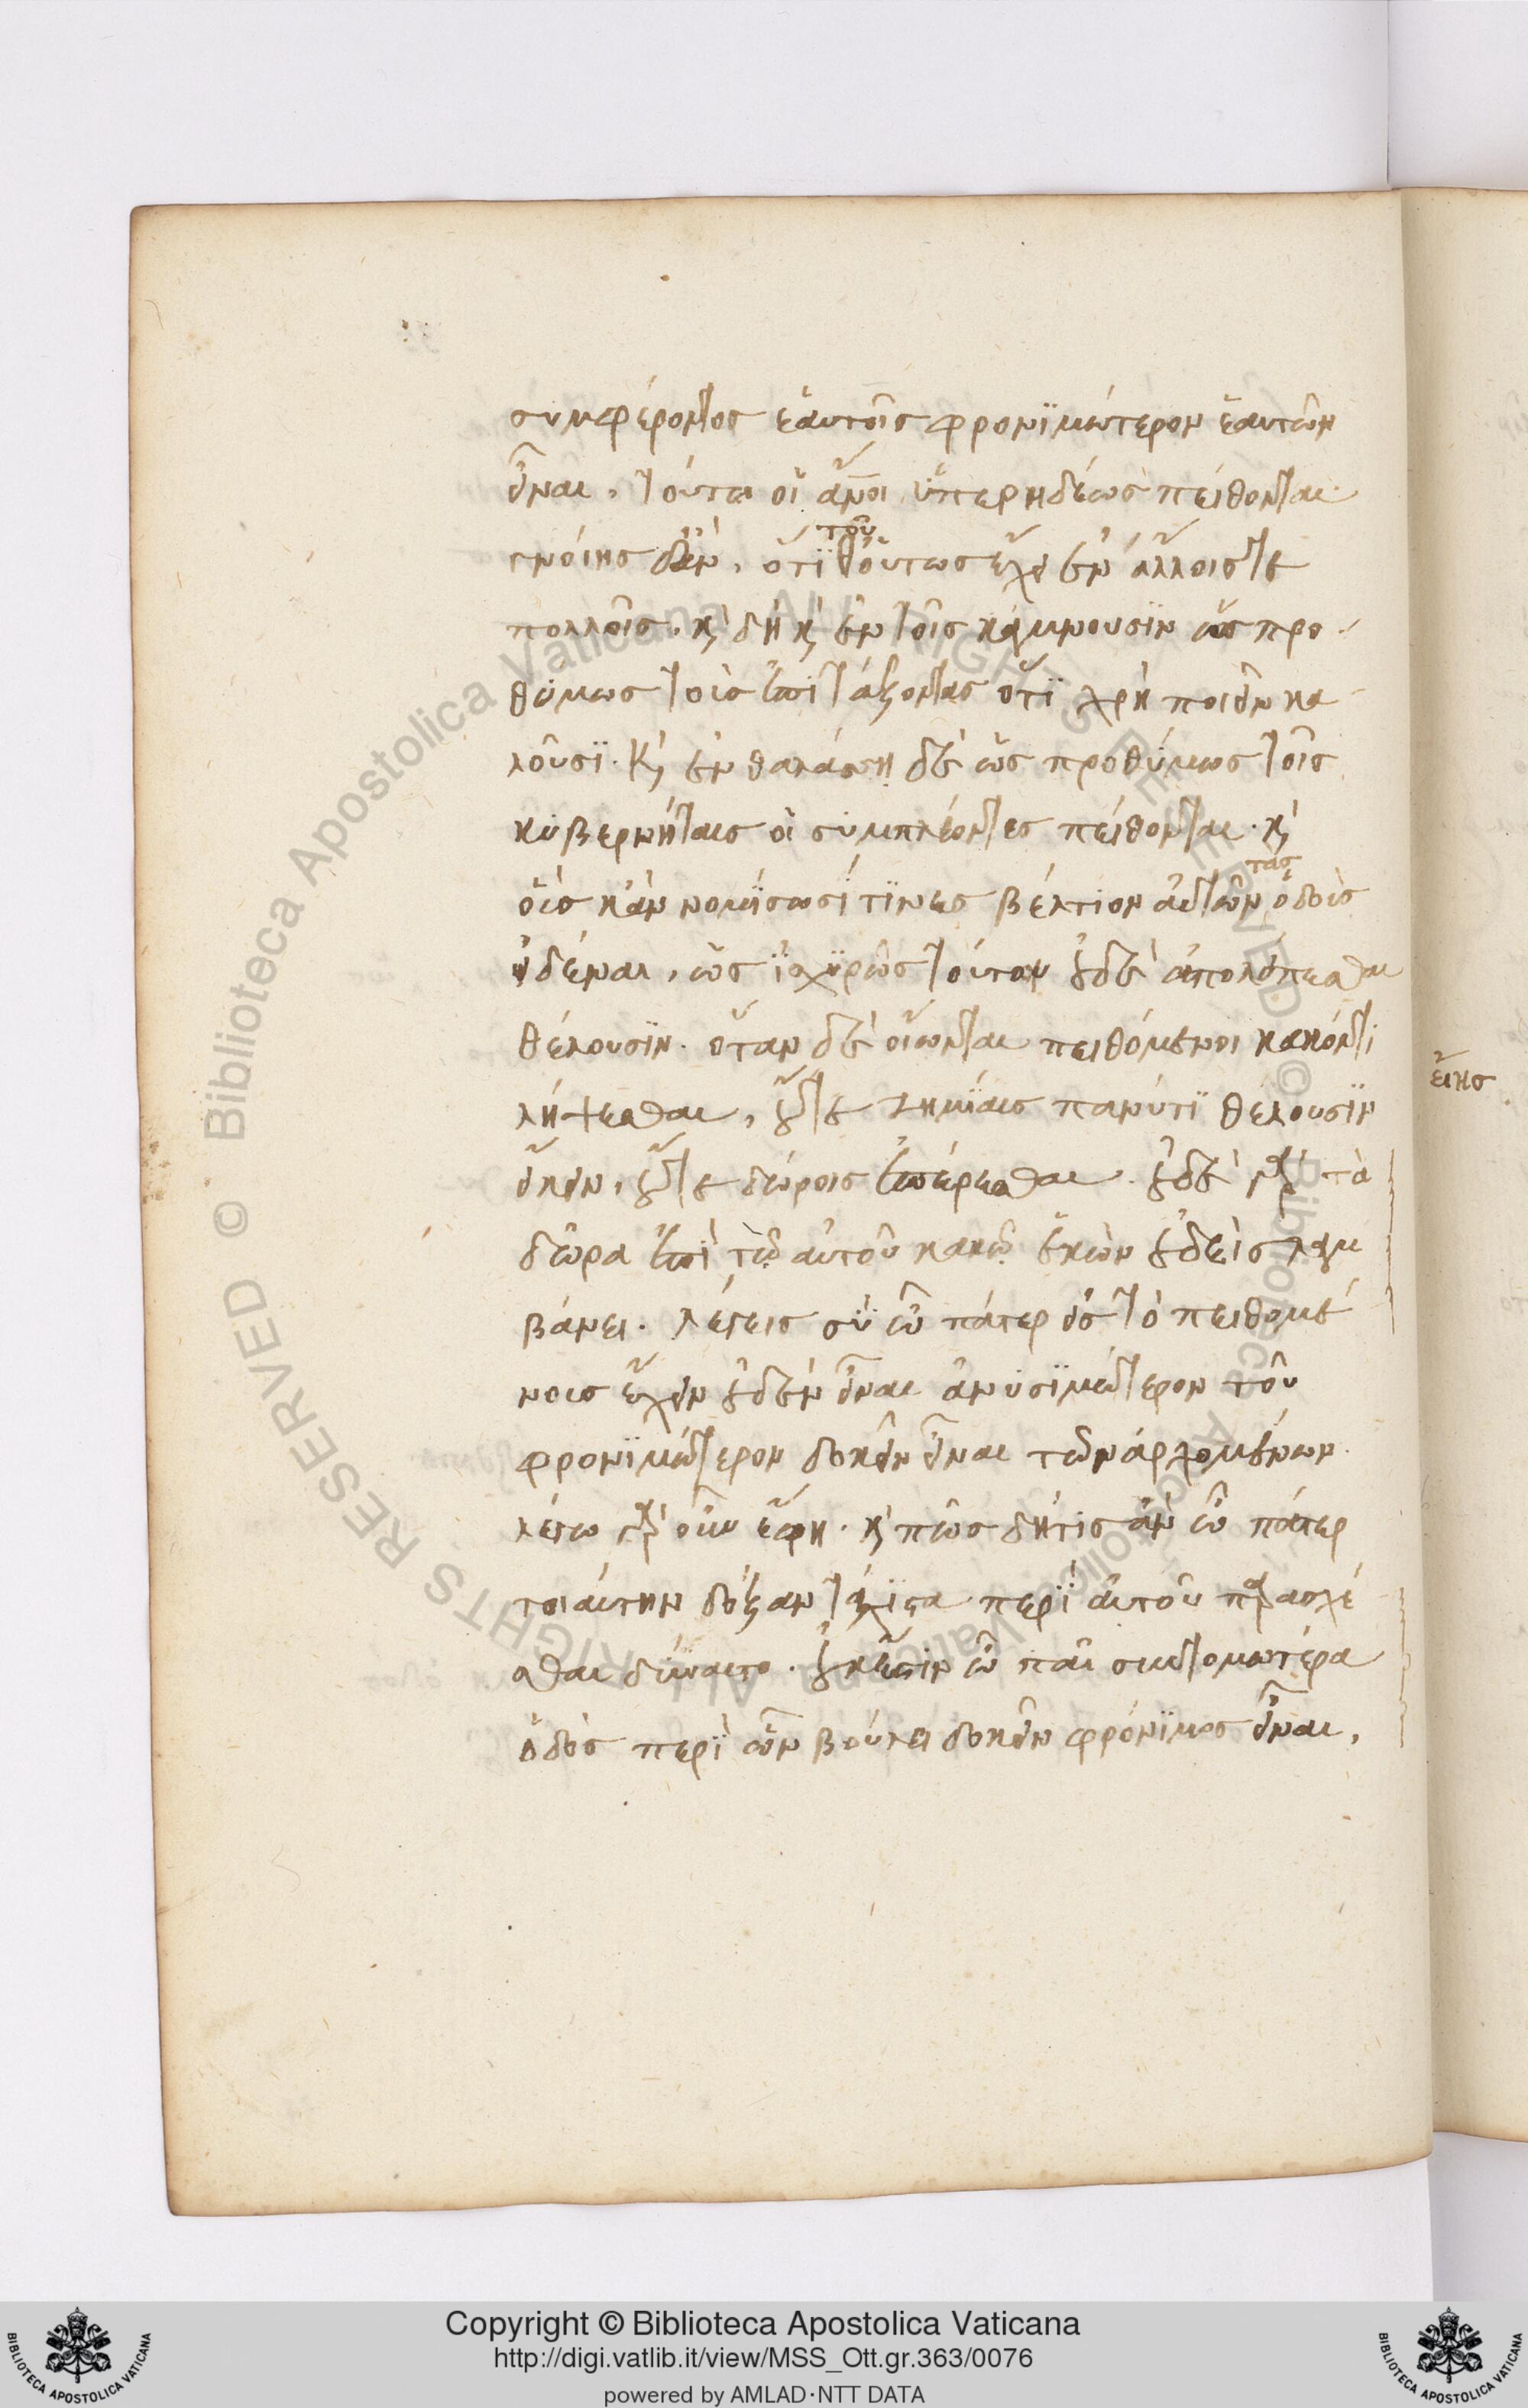 συμφέροντος ἑαυτοῖς φρονϊμώτερον ἑαυτῶν
εἶναι, τούτω οἱ ἄνοι ὑπερηδέως πείθονται.
γνοίης δ' ἂν, ὅτϊ τοῦθ' οὕτως ἔχει ἐν ἄλλοις τε
πολλοῖς. κὶ δὴ κὶ ἐν τοῖς κάμνουσϊν ὡς προ-
θύμως τοὺς ἐπϊτάξοντας ὅτϊ χρὴ ποιεῖν κα-
λοῦσϊ. κὶ ἐν θαλάσσῃ δὲ ὡς προθύμως τοῖς
κυβερνήταις οἱ συμπλέοντες πείθονται. κὶ
οὓς κἂν νομΐσωσί τϊνες βέλτιον αὐτῶν τὰς ὁδοὺς
εἰδέναι, ὡς ἰσχϋρῶς τούτων οὐδὲ ἀπολείπεσθαι
θέλουσϊν. ὅταν δὲ οἴωνται πειθόμενοι κακόν τι
λήψεσθαι, οὔτε ζημΐαις πανύτϊ θέλουσϊν
εἴκειν, οὔτε δώροις ἐπαίρεσθαι. οὐδὲ γὰρ τὰ
δῶρα ἐπὶ τῷ αὑτοῦ κακῷ ἑκὼν οὐδεὶς λαμ
βάνει. λέγεις σὺ ὦ πάτερ εἰς τὸ πειθομέ
νοις ἔχειν οὐδὲν εἶναι ἀνυσϊμώτερον τοῦ
φρονϊμώτερον δοκεῖν εἶναι τῶν ἀρχομένων.
λέγω γὰρ οὖν ἔφη. κὶ πῶς δήτις ἂν ὦ πάτερ
τοιαύτην δόξαν τάχϊστα περὶ αὑτοῦ παρασχέ
σθαι δύναιτο. οὐκ ἔστιν ὦ παῖ συντομωτέρα
ὁδὸς περὶ ὧν βούλει δοκεῖν φρόνϊμος εἶναι,
εἴης
Copyright © Biblioteca Apostolica Vaticana
http://digi.vatlib.it/view/MSS_Ott.gr.363/0076
powered by AMLAD·NTT DATA